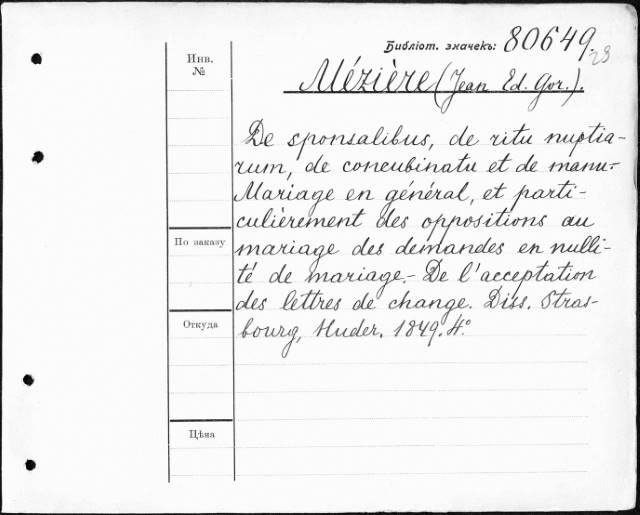 Библіот. значекъ: 80649.
23
Инв.
№
Mézière (Jean Ed. Gor.).
De sponsalibus, de ritu nuptia-
rum, de concubinatu et de manu.-
Mariage en général, et parti-
culièrement des oppositions au
По заказу
mariage des demandes en nulli-
té de mariage.- De l'acceptation
des lettres de change. Diss. Stras-
Откуда
bourg, Huder. 1849. 4°.
Цѣна